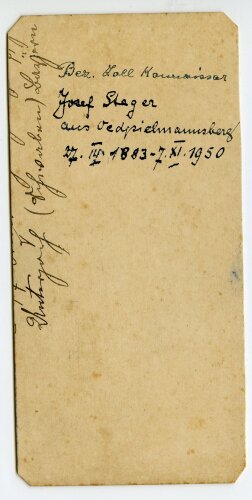 Bez. Zoll Kommissar
Josef Steger
aus Oedspielmannsberg
27. IV. 1883 - 7. XI. 1950
(Schwaben) Bayern